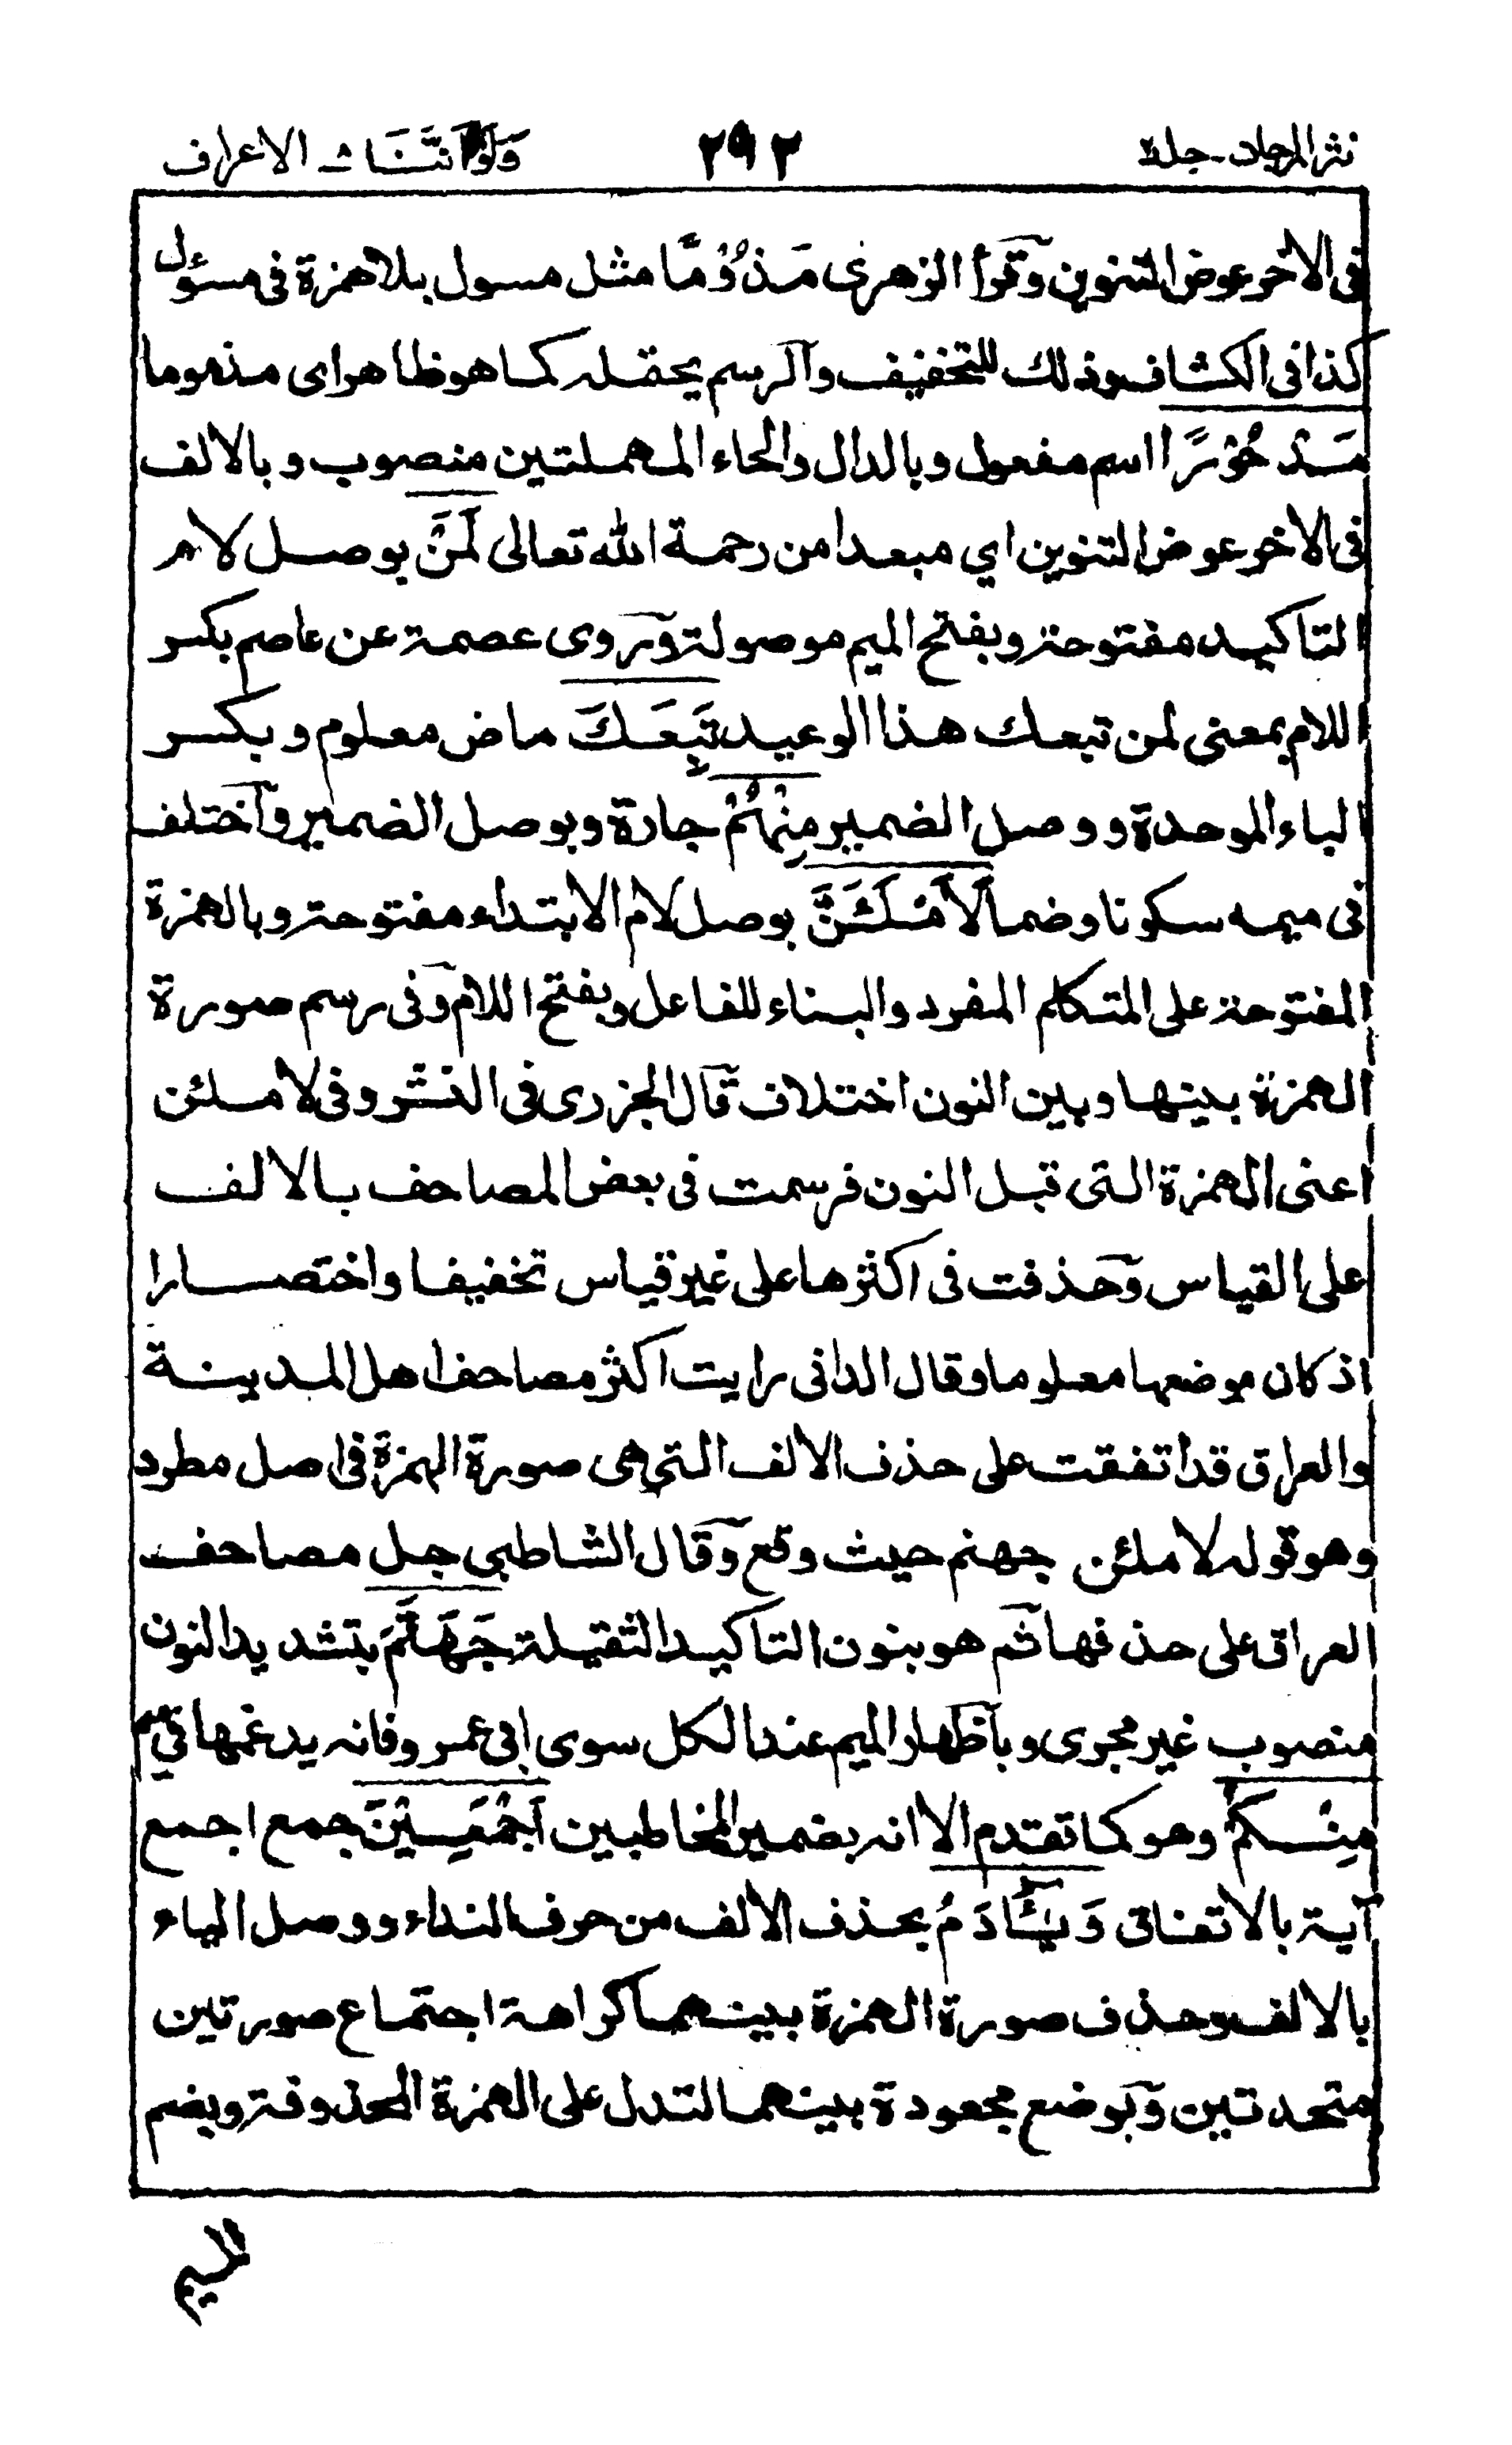 نثر المرجان - جلد ٢٩٢ ولواننا ٨ الاعراف
فى الاخر عوض التنوين وقرأ الزهرى مَذُوْمًا مثل مسول بلا همزة فى مسئول
كذا فى الكشاف وذلك للتخفيف والرسم يحتمله كما هو ظاهر اى مذموما
مَدْحُوْرًا اسم مفعول وبالدال والحاء المهملتين منصوب وبالالف
فى الاخر عوض التنوين اي مبعدا من رحمة الله تعالى لَمَنْ بوصل لام
التاكيد مفتوحة وبفتح الميم موصولة وروى عصمة عن عاصم بكسر
اللام بمعنى لمن تبعك هذا الوعيد تَبِعَكَ ماض معلوم وبكسر
الباء الموحدة ووصل الضمير مِنْهُمْ جارة وبوصل الضمير واختلف
فى ميمه سكونا وضما لَاَمْلَئَنَّ بوصل لام الابتداء مفتوحة وبالهمزة
المفتوحة على المتكلم المفرد والبناء للفاعل وبفتح اللام وفى رسم صورة
الهمزة بينها وبين النون اختلاف قال الجزرى فى النشر وفى لاملئن
اعنى الهمزة التى قبل النون فرسمت فى بعض المصاحف بالالف
على القياس وحذفت فى اكثرها على غير قياس تخفيفا واختصارا
اذ كان موضعها معلوما وقال الدانى رايت اكثر مصاحف اهل المدينة
والعراق قد اتفقت على حذف الالف التى هى صورة الهمزة فى اصل مطرد
وهو قوله لاملئن جهنم حيث وقع وقال الشاطبى جل مصاحف
العراق على حذفها ثم هو بنون التاكيد الثقيلة جَهَنَّمَ بتشديد النون
منصوب غير مجرى وباظهار الميم عند الكل سوى ابى عمرو فانه يدغمها فى ميم
مِنْكُمْ وهو كما تقدم الا انه بضمير المخاطبين اَجْمَعِيْنَ جمع اجمع
آية بالاتفاق وَيٰٓـَٔادَمُ بحذف الالف من حرف النداء ووصل الياء
بالالف وحذف صورة الهمزة بينهما كراهة اجتماع صورتين
متحدتين وبوضع مجعودة بينهما لتدل على الهمزة المحذوفة وبضم
الميم